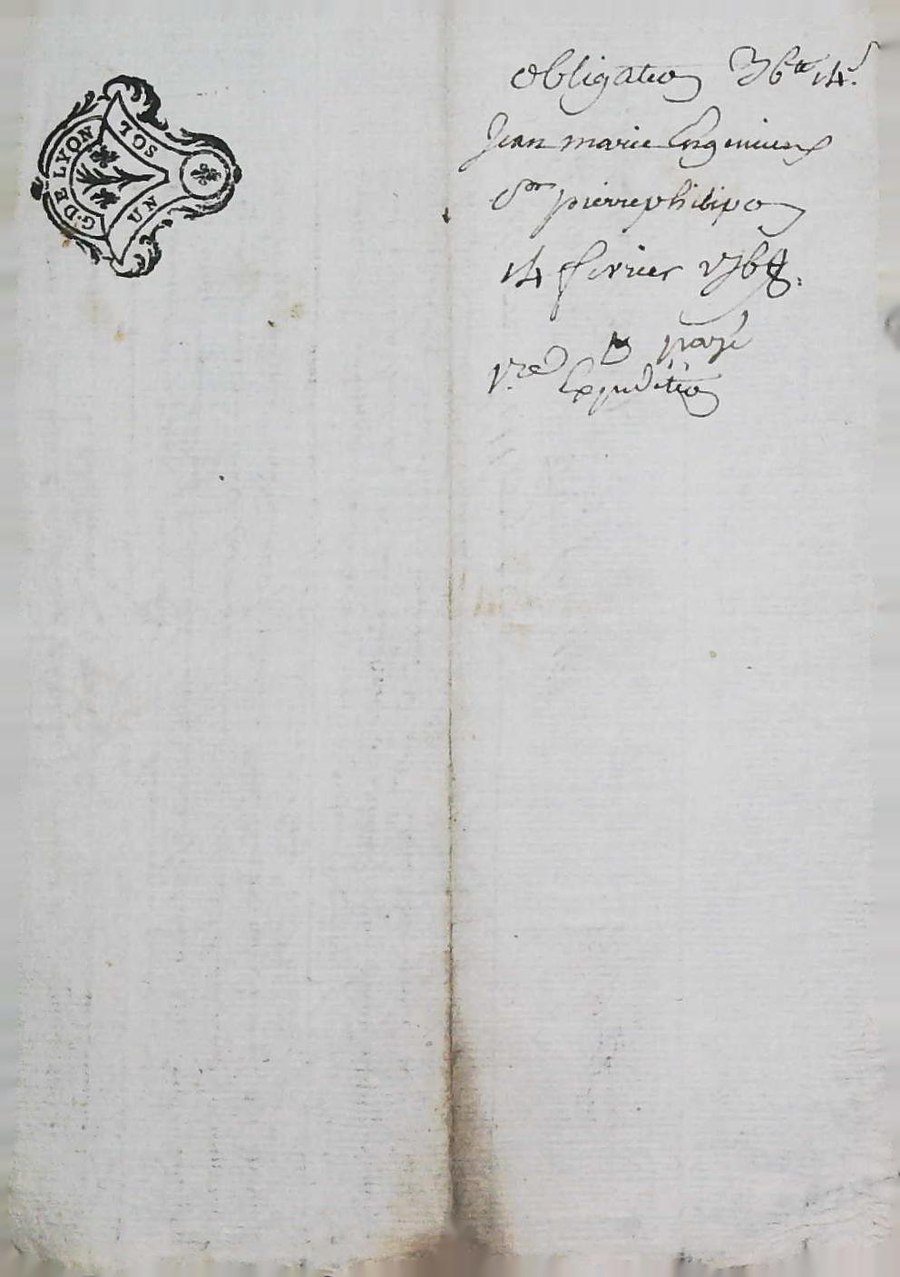 G. DE LYON
UN SOL
obligation 36tt 14s
Jean marie
Sr pierre philipon
14 fevrier 1768.
payé
Expedition